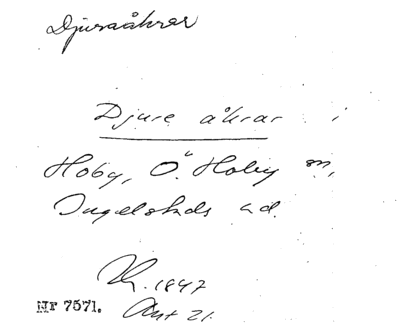 Djuraåkrar
Djure åkrar i
Hoby, Ö. Hoby sn,
Ingelstads hd.
1847
Nr 7571. Akt 21.